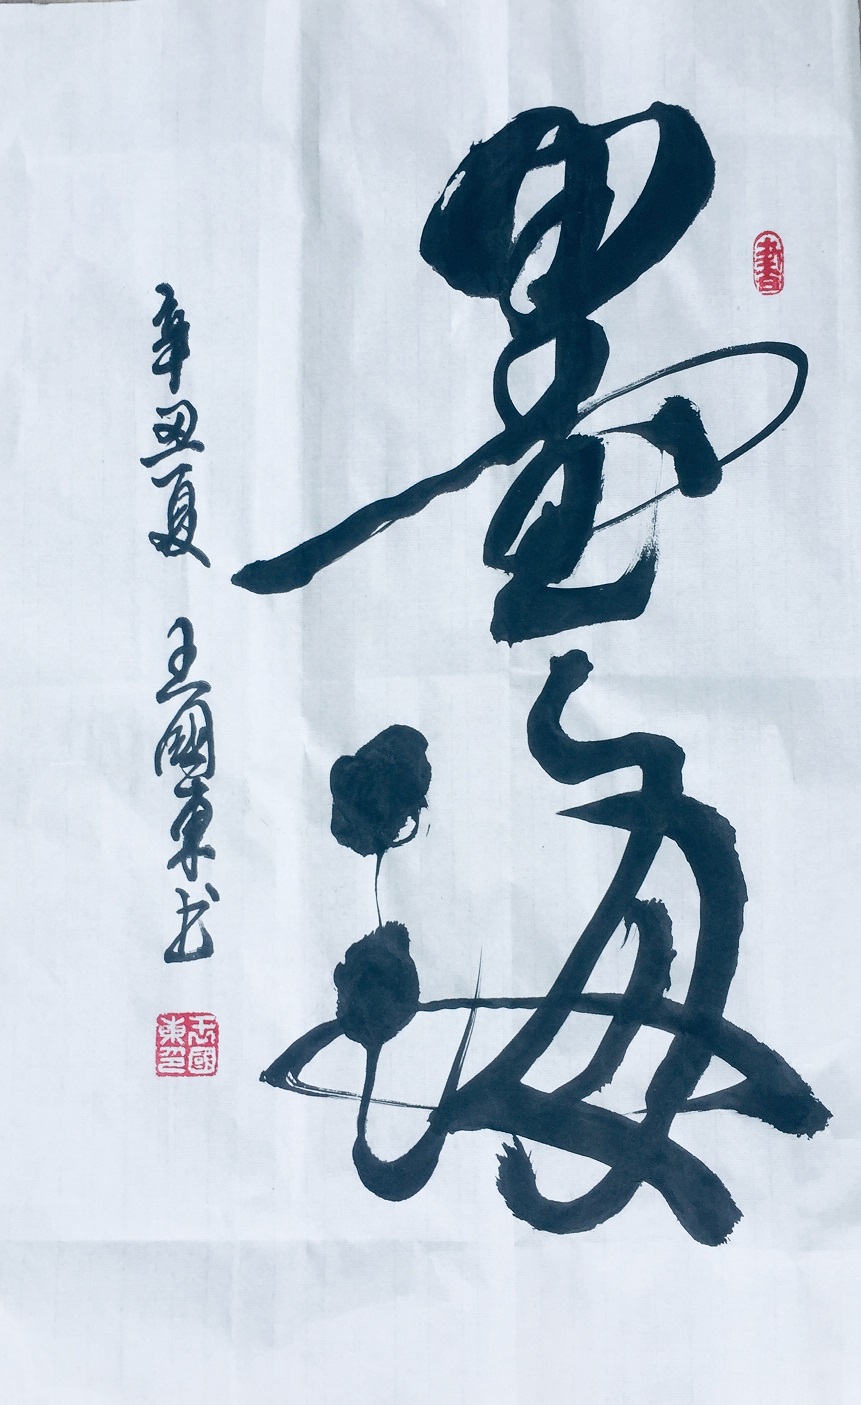 墨海
辛丑夏 王國東书
書
王國東印